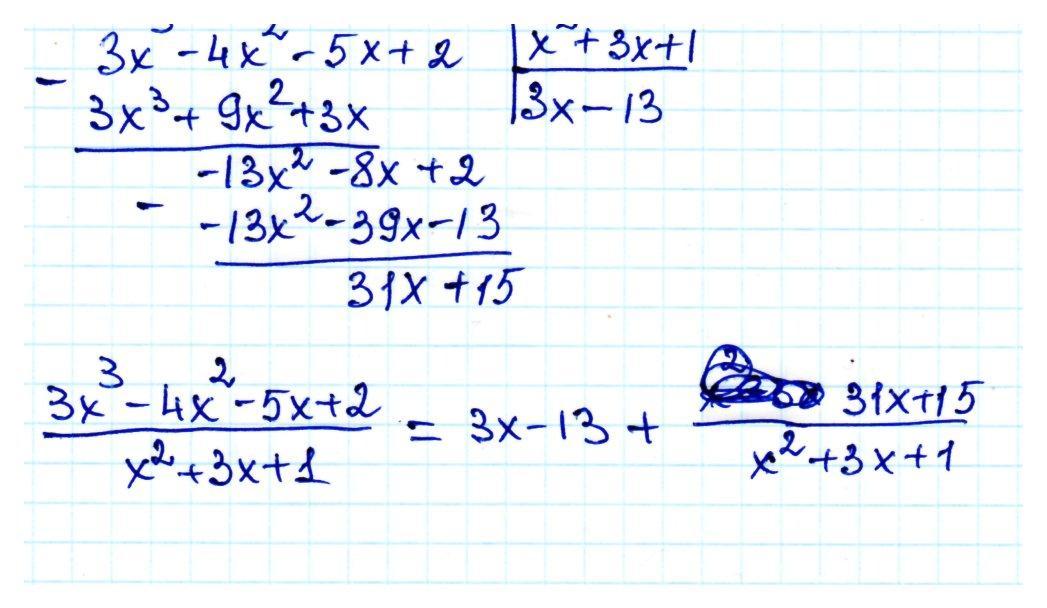 3x³ - 4x² - 5x + 2 | x² + 3x + 1
- 3x³ + 9x² + 3x | 3x - 13
-13x² - 8x + 2
- -13x² - 39x - 13
31x + 15
3x³ - 4x² - 5x + 2 31x + 15
= 3x - 13 +
x² + 3x + 1 x² + 3x + 1